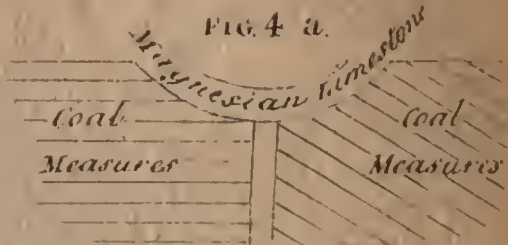 FIG. 4 a.
Magnesian Limestone
Coal
Measures
Coal
Measures